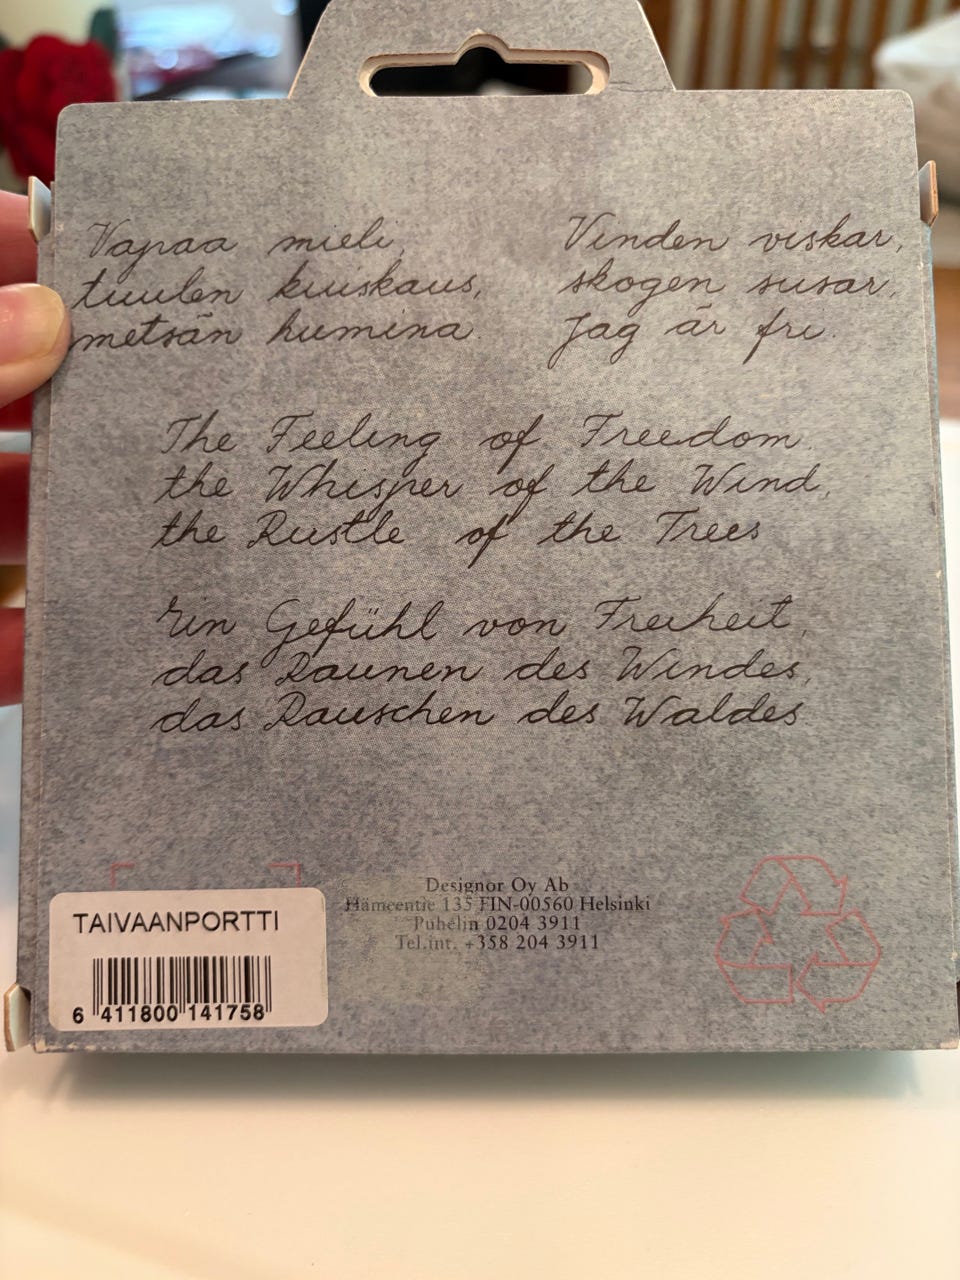 Vapaa mieli,
tuulen kuiskaus,
metsän humina.
Vinden viskar,
skogen susar,
Jag är fri.
The Feeling of Freedom,
the Whisper of the Wind,
the Rustle of the Trees
Ein Gefühl von Freiheit,
das Raunen des Windes,
das Rauschen des Waldes.
Designor Oy Ab
Hämeentie 135 FIN-00560 Helsinki
Puhelin 0204 3911
Tel.int. +358 204 3911
TAIVAANPORTTI
6 411800 141758